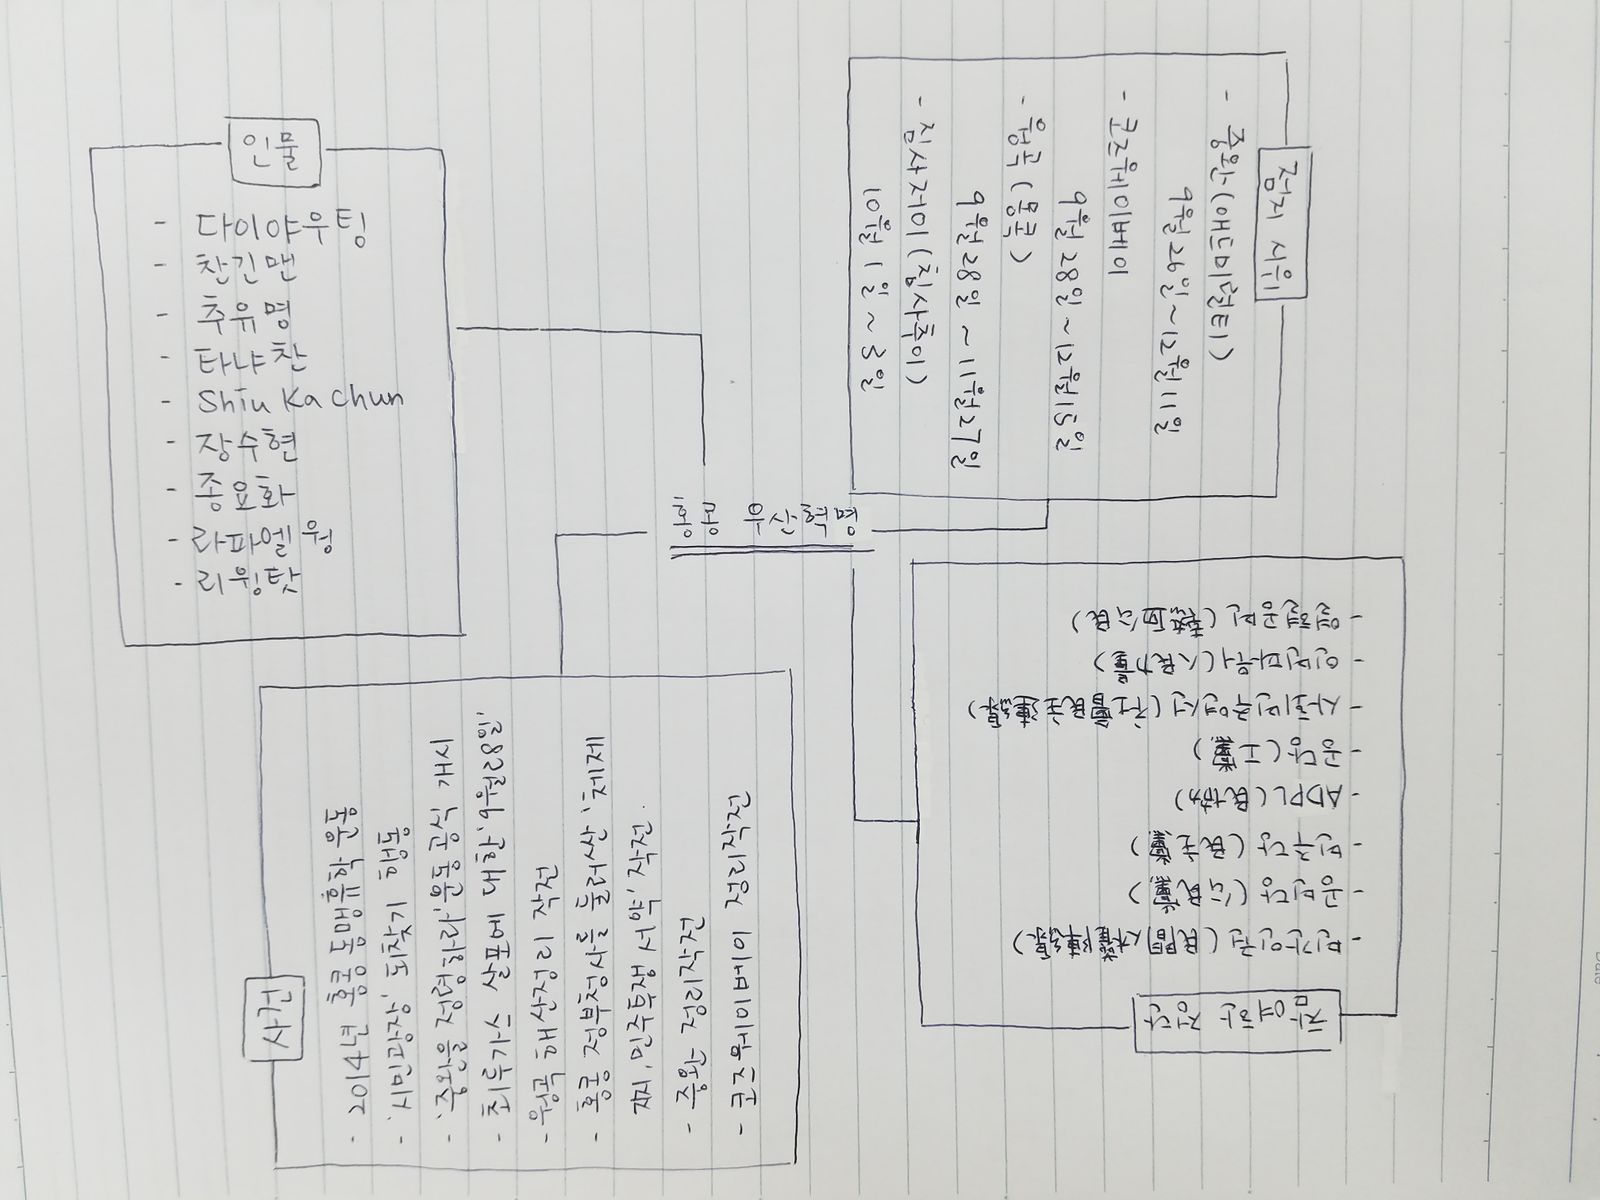 홍콩 우산혁명
인물
- 다이야우팅
- 찬긴맨
- 추유명
- 타냐찬
- Shiu Ka Chun
- 장수현
- 종요화
- 라파엘 웡
- 리윙탓
점거 시위
- 중완 (애드미럴티)
9월 26일 ~ 12월 11일
- 코즈웨이베이
9월 28일 ~ 12월 15일
- 웡곡 (몽콕)
9월 28일 ~ 11월 27일
- 침사저이 (침사추이)
10월 1일 ~ 3일
사건
- 2014년 홍콩 동맹휴학 운동
- '시민광장' 되찾기 행동
- '중완을 점령하라' 운동 공식 개시
- 최루가스 살포에 대한 '9월 28일'
- 웡곡 해산정리 작전
- 홍콩 정부청사를 둘러싼 '체제
저지, 민주투쟁 서약' 작전
- 중완 정리작전
- 코즈웨이베이 정리작전
참여한 정당
- 민간인권 (民間人權陣線)
- 공민당 (公民黨)
- 민주당 (民主黨)
- ADPL (民協)
- 공당 (工黨)
- 사회민주연선 (社會民主連線)
- 인민역량 (人民力量)
- 열혈공민 (熱血公民)